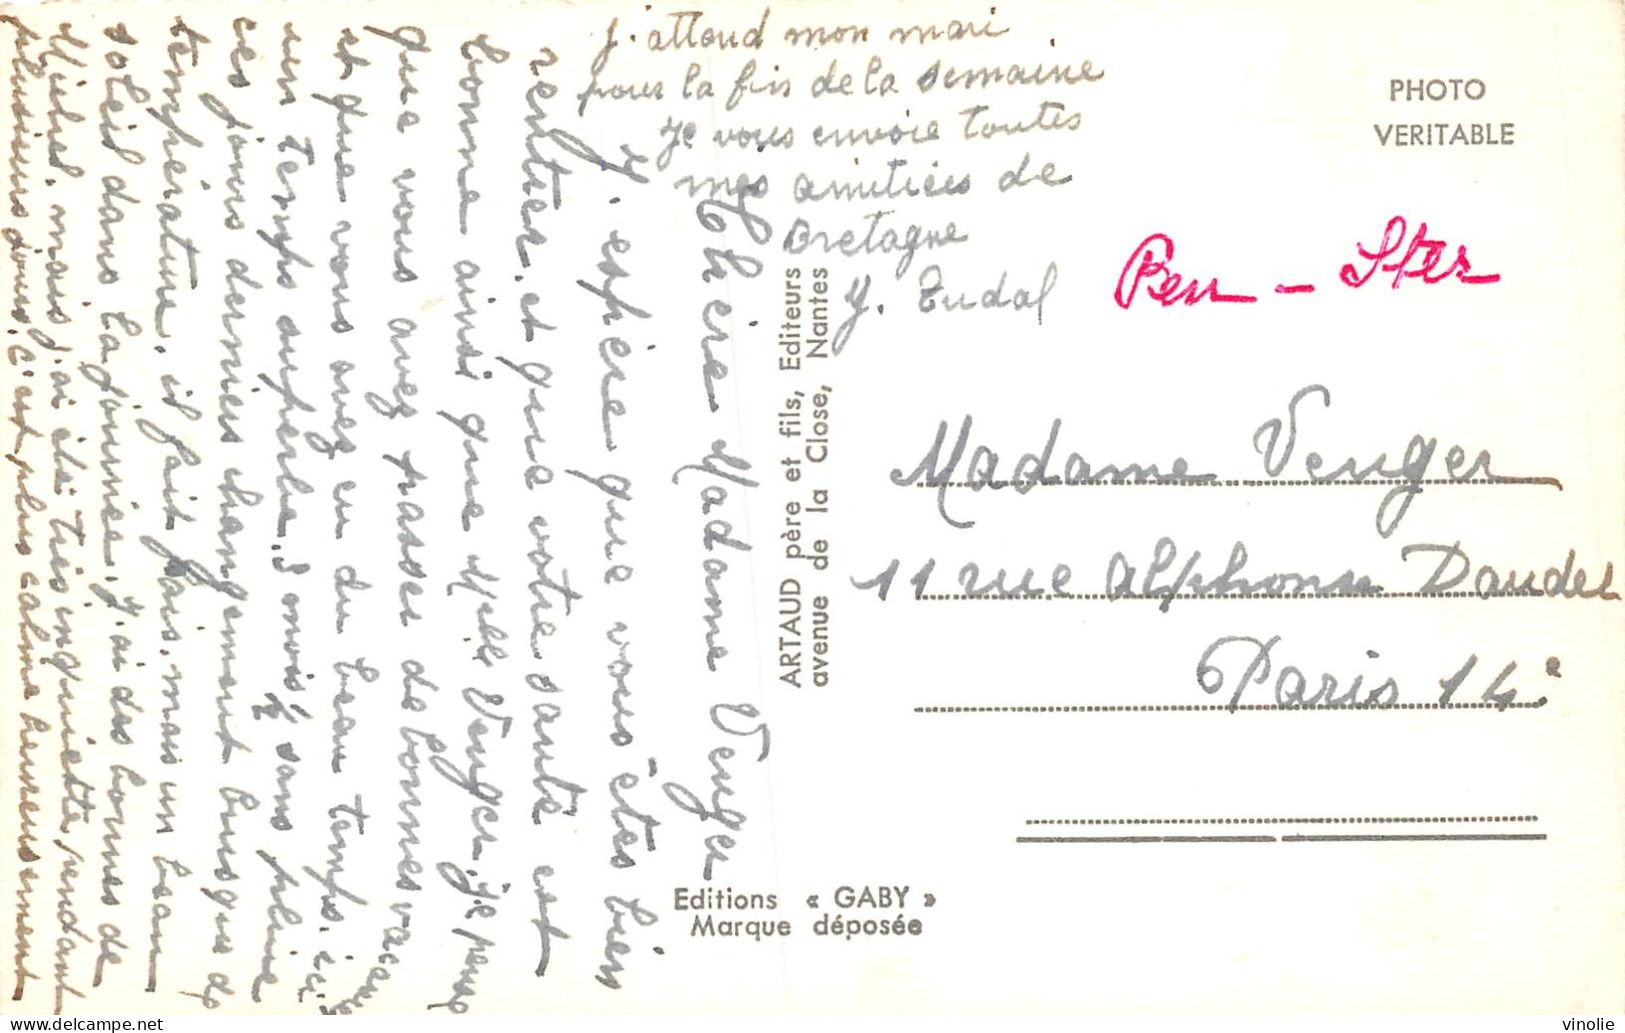 Chère Madame Venger
J. espère que vous êtes bien
rentrer, et que votre santé est
bonne ainsi que Melle Venger, je pense
que vous avez passer de bonnes vacances
et que vous avez eu du beau temps. ici
un temps superbe, 3 mois ½ sans pluie
ces jours derniers changement brusque de
température, il fait frais, mais un beau
soleil dans la journée, J'ai des bonnes de
Michel, mais j'ai été très inquiette, pendant
plusieurs jours, c'est plus calme heureusement
J. attend mon mari
pour la fin de la semaine
Je vous envoie toutes
mes amitiées de
Bretagne
Y. Tudal
PHOTO
VERITABLE
Pen - Ster
ARTAUD père et fils, Editeurs
avenue de la Close, Nantes
Madame Venger
11 rue Alphonse Daudet
Paris 14e
Editions « GABY »
Marque déposée
delcampe.net
vinolie